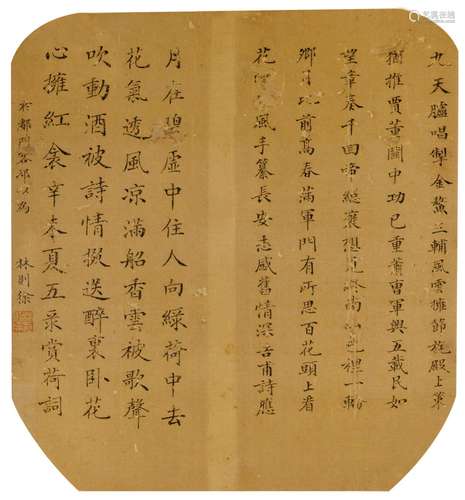 九天臚唱掣金鰲三輔風雲擁節旄殿上策
獨推賈董關中功已重蕭曹軍興五載民如
望章奏千回 總 想見終南 色裡一輪
鄉月地前高春滿軍門有所思百花頭上看
花 風手纂長安志感舊情深 甫詩應
月在碧虛中住人向綠荷中去
花氣透風涼滿船香雲被歌聲
吹動酒被詩情掇送醉裏臥花
心擁紅衾辛未夏五 賞荷詞
於都門客邸以為
林則徐